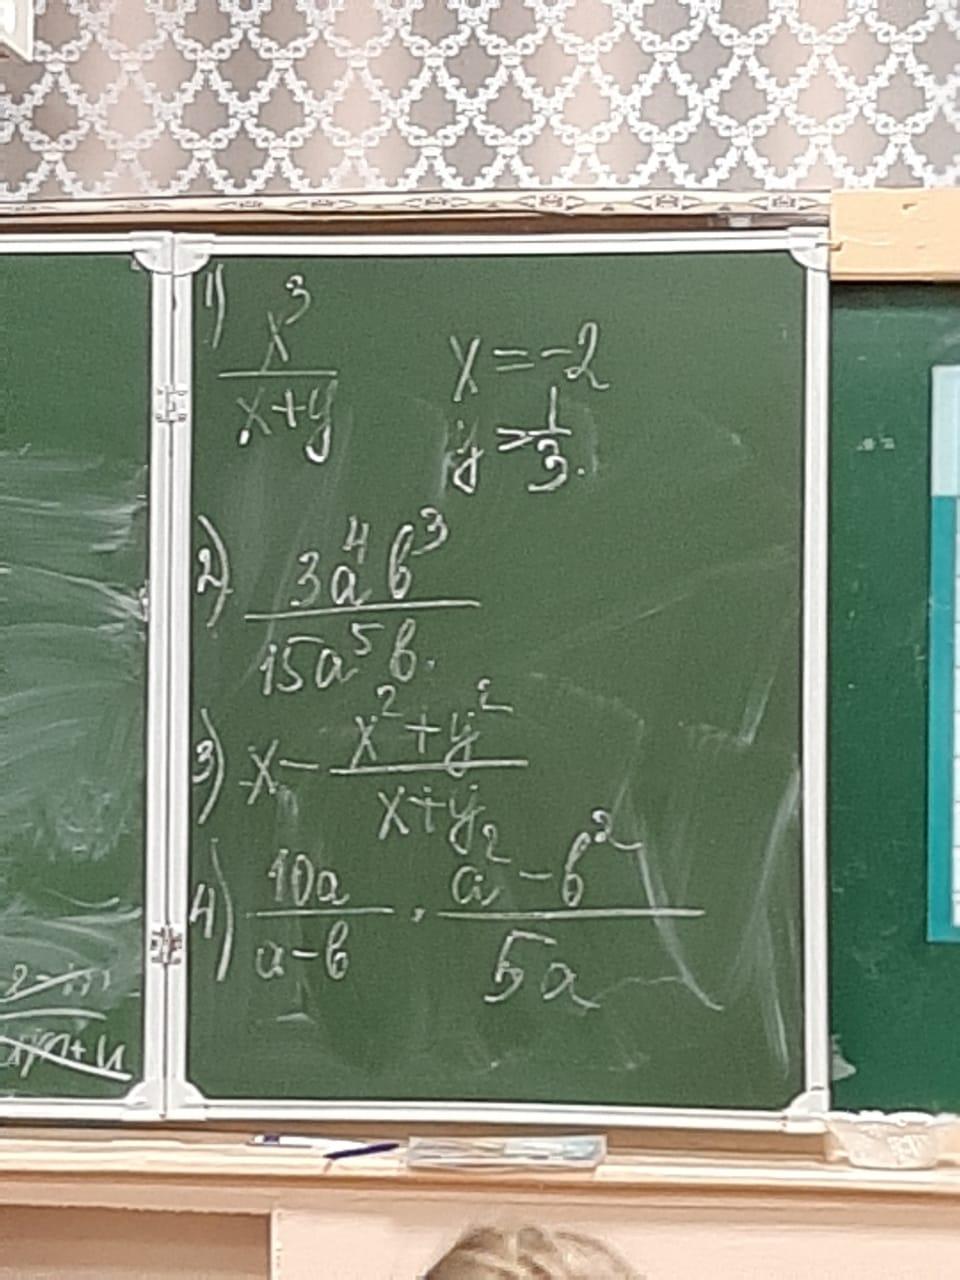 1) x³/(x+y) x=-2
y=1/3.
2) 3a⁴b³/(15a⁵b).
3) x-(x²+y²)/(x+y)
4) 10a/(a-b) · (a²-b²)/(5a)